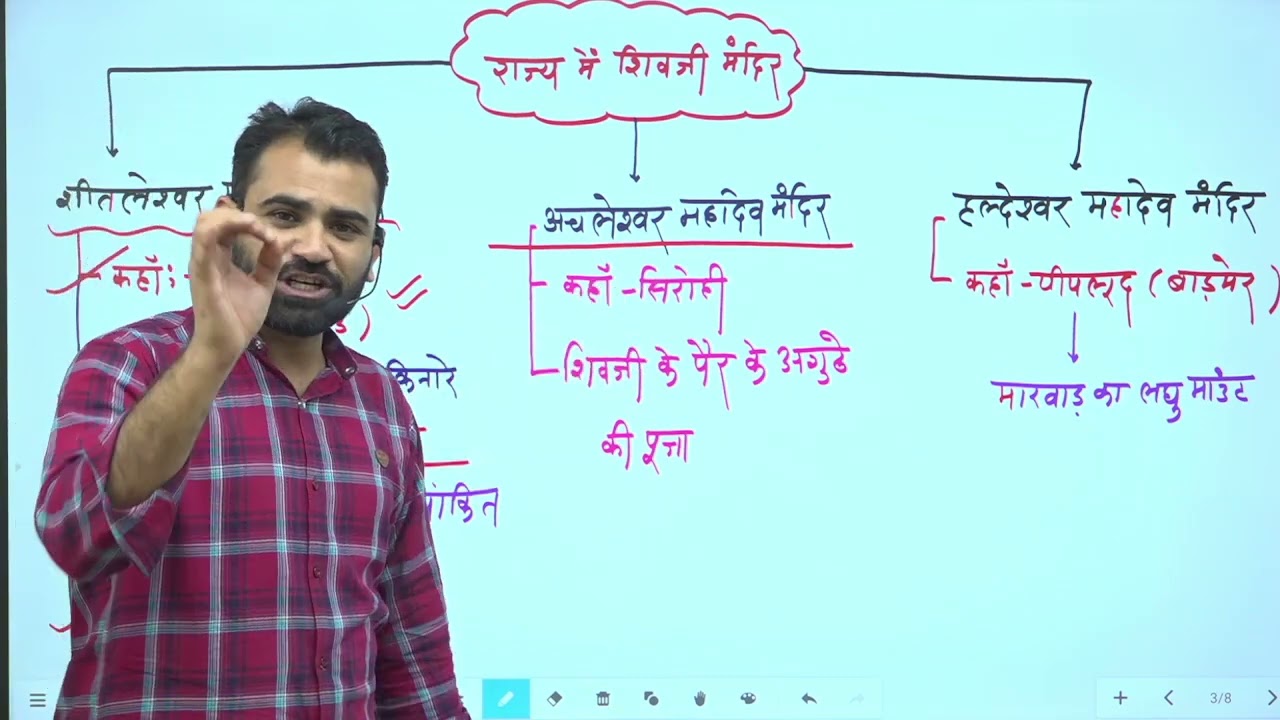 राज्य में शिवजी मंदिर
शीतलेश्वर
कहाँ:-
किनारे
अचलेश्वर महादेव मंदिर
कहाँ - सिरोही
शिवजी के पैर के अगुठे
की पूजा
हल्देश्वर महादेव मंदिर
कहाँ - पीपलूद (बाड़मेर)
मारवाड़ का लघु माउंट
3/8